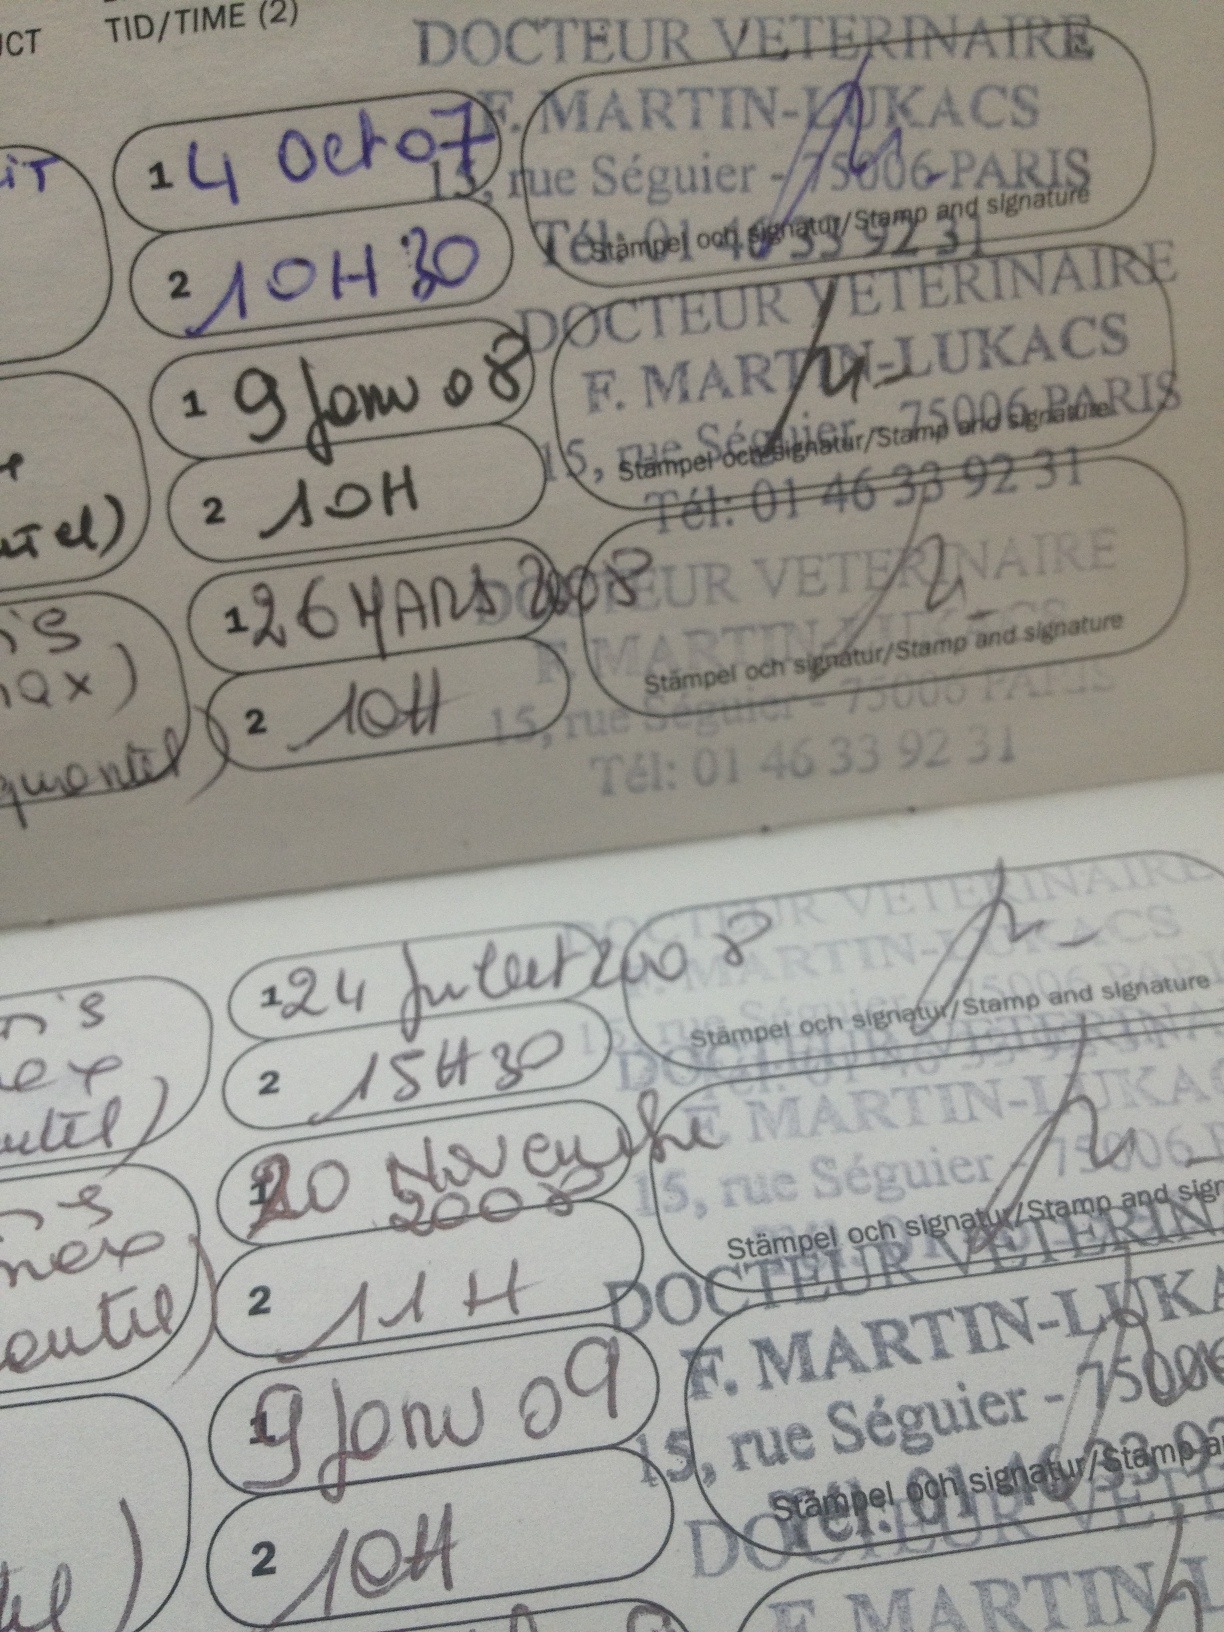 UCT TID/TIME (2)
DOCTEUR VETERINAIRE
F. MARTIN-LUKACS
15, rue Séguier - 75006 PARIS
Tél: 01 46 33 92 31
Stämpel och signatur/Stamp and signature
1 4 Oct 07
2 10H30
DOCTEUR VETERINAIRE
F. MARTIN-LUKACS
15, rue Séguier - 75006 PARIS
Tél: 01 46 33 92 31
Stämpel och signatur/Stamp and signature
1 9 Janv 08
2 10H
DOCTEUR VETERINAIRE
F. MARTIN-LUKACS
15, rue Séguier - 75006 PARIS
Tél: 01 46 33 92 31
Stämpel och signatur/Stamp and signature
1 26 MARS 2008
2 10H
DOCTEUR VETERINAIRE
F. MARTIN-LUKACS
15, rue Séguier - 75006 PARIS
Stämpel och signatur/Stamp and signature
1 24 Juillet 2008
2 15H30
DOCTEUR VETERINA
F. MARTIN-LUKAC
15, rue Séguier - 75006 P
Stämpel och signatur/Stamp and sign
1 20 Novembre
2008
2 11H
DOCTEUR VETERIN
F. MARTIN-LUKA
15, rue Séguier - 75006
Stämpel och signatur/Stamp a
1 9 Janv 09
2 10H
DOCTEUR VETE
F. MARTIN-L